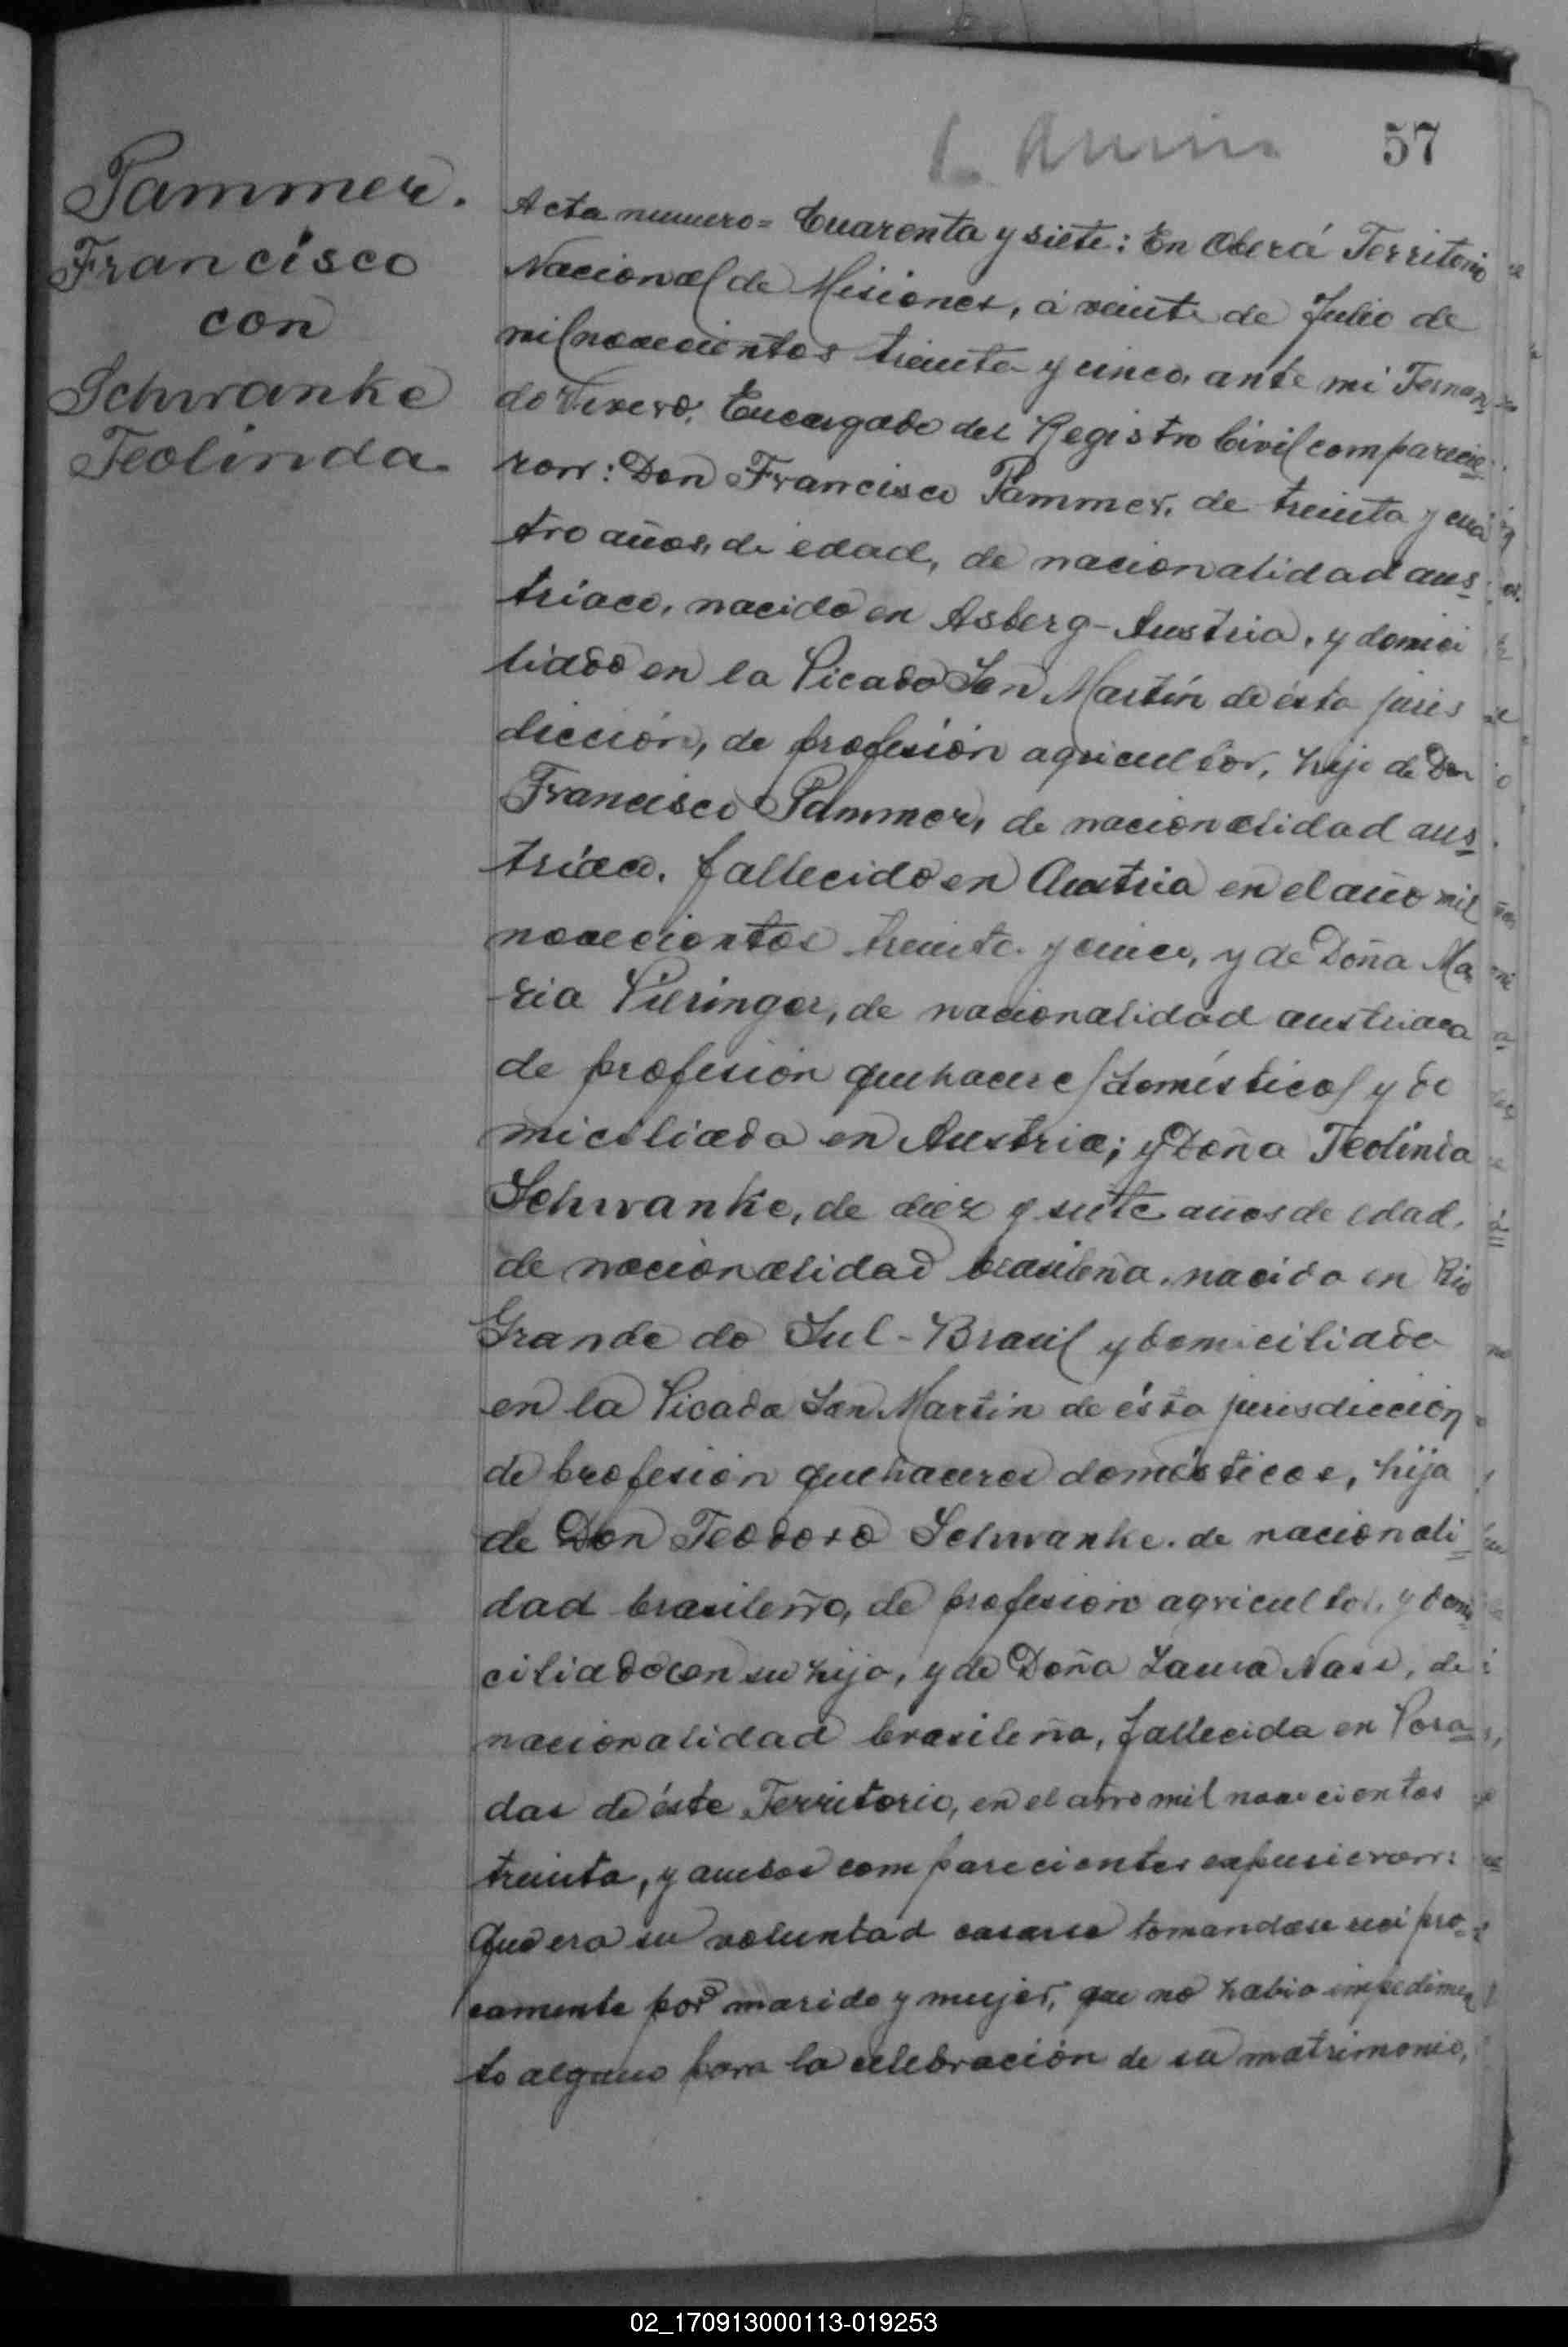 57
Pammer.
Francisco
con
Schwanke
Teolinda.
Acta numero= Cuarenta y siete: En Oberá Territorio
Nacional de Misiones, á veinte de Julio de
mil novecientos treinta y cinco, ante mi Fernan
do Encargado del Registro Civil comparecie
ron: Don Francisco Pammer, de treinta y cua
tro años, de edad, de nacionalidad aus
triaco, nacido en Asberg-Austria, y domici
liado en la Picada San Martín de ésta juris
dicción, de profesión agricultor, hijo de Don
Francisco Pammer, de nacionalidad aus
tríaco, fallecido en Austria en el año mil
novecientos treinta y cinco, y de Doña Ma
ria Pieringer, de nacionalidad austriaca
de profesión quehaceres domésticos y do
miciliada en Austria; y Doña Teolinda
Schwanke, de diez y siete años de edad,
de nacionalidad brasileña, nacida en Rio
Grande do Sul - Brasil y domiciliada
en la Picada San Martín de ésta jurisdicción
de profesión quehaceres domésticos, hija
de Don Teodoro Schwanke, de nacionali
dad brasileño, de profesión agricultor, y domi
ciliado con su hija, y de Doña Laura Nass, de
nacionalidad brasileña, fallecida en Posa
das de éste Territorio, en el año mil novecientos
treinta, y ambos comparecientes expusieron:
Que era su voluntad casarse tomandose recipro
camente por marido y mujer, que no habia impedimen
to alguno para la celebración de su matrimonio,
02_170913000113-019253